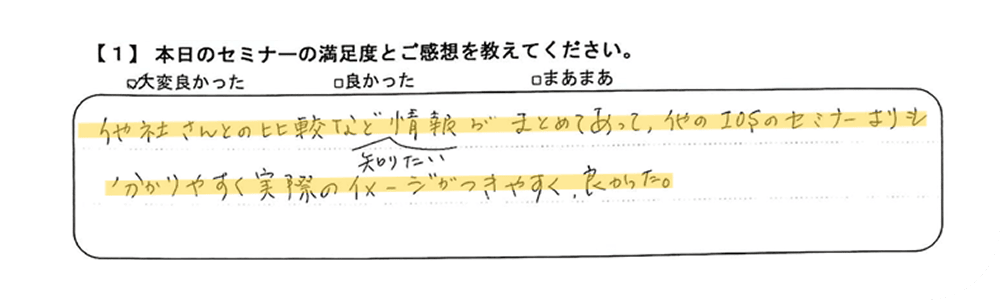 【1】本日のセミナーの満足度とご感想を教えてください。
☑大変良かった　□良かった　□まあまあ
他社さんとの比較など情報がまとめてあって、他のIDSのセミナーよりも
知りたい
分かりやすく実際のイメージがつきやすく、良かった。